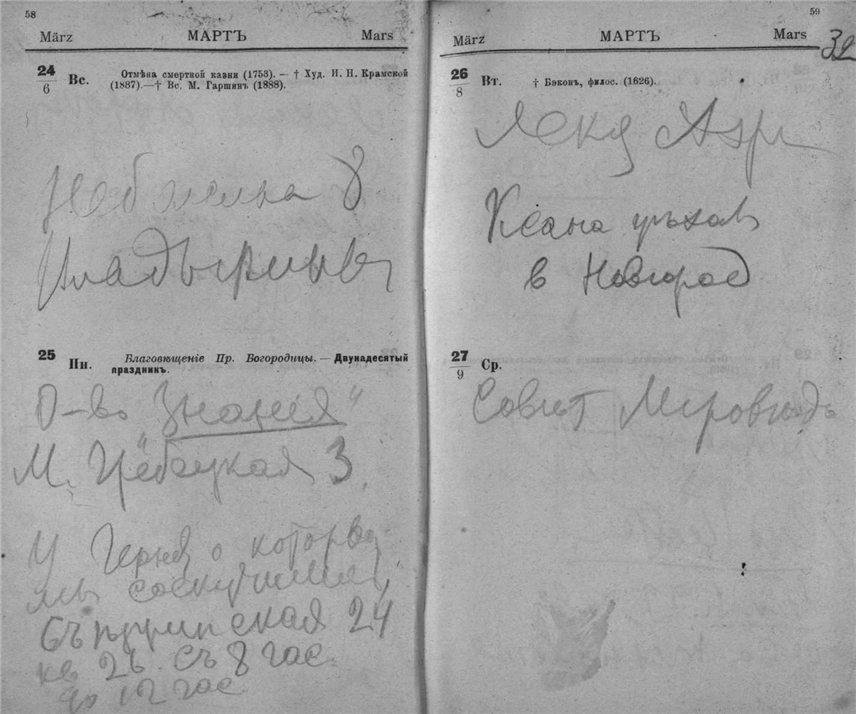 58
März МАРТЪ Mars
24
6
Вс.
Отмѣна смертной казни (1753). — † Худ. И. Н. Крамской
(1887).—† Вс. М. Гаршинъ (1888).
8
25
Пн.
Благовѣщеніе Пр. Богородицы. — Двунадесятый
праздникъ.
О-во "Знанія"
М. Гребецкая 3.
У о которой
мы соскучились
24
кв 26. съ 8 час.
до 12 час
59
März МАРТЪ Mars
32
26
8
Вт.
† Бэконъ, филос. (1626).
Ксана уѣхала
в Новгород
27
9
Ср.
Совет Мировѣдъ